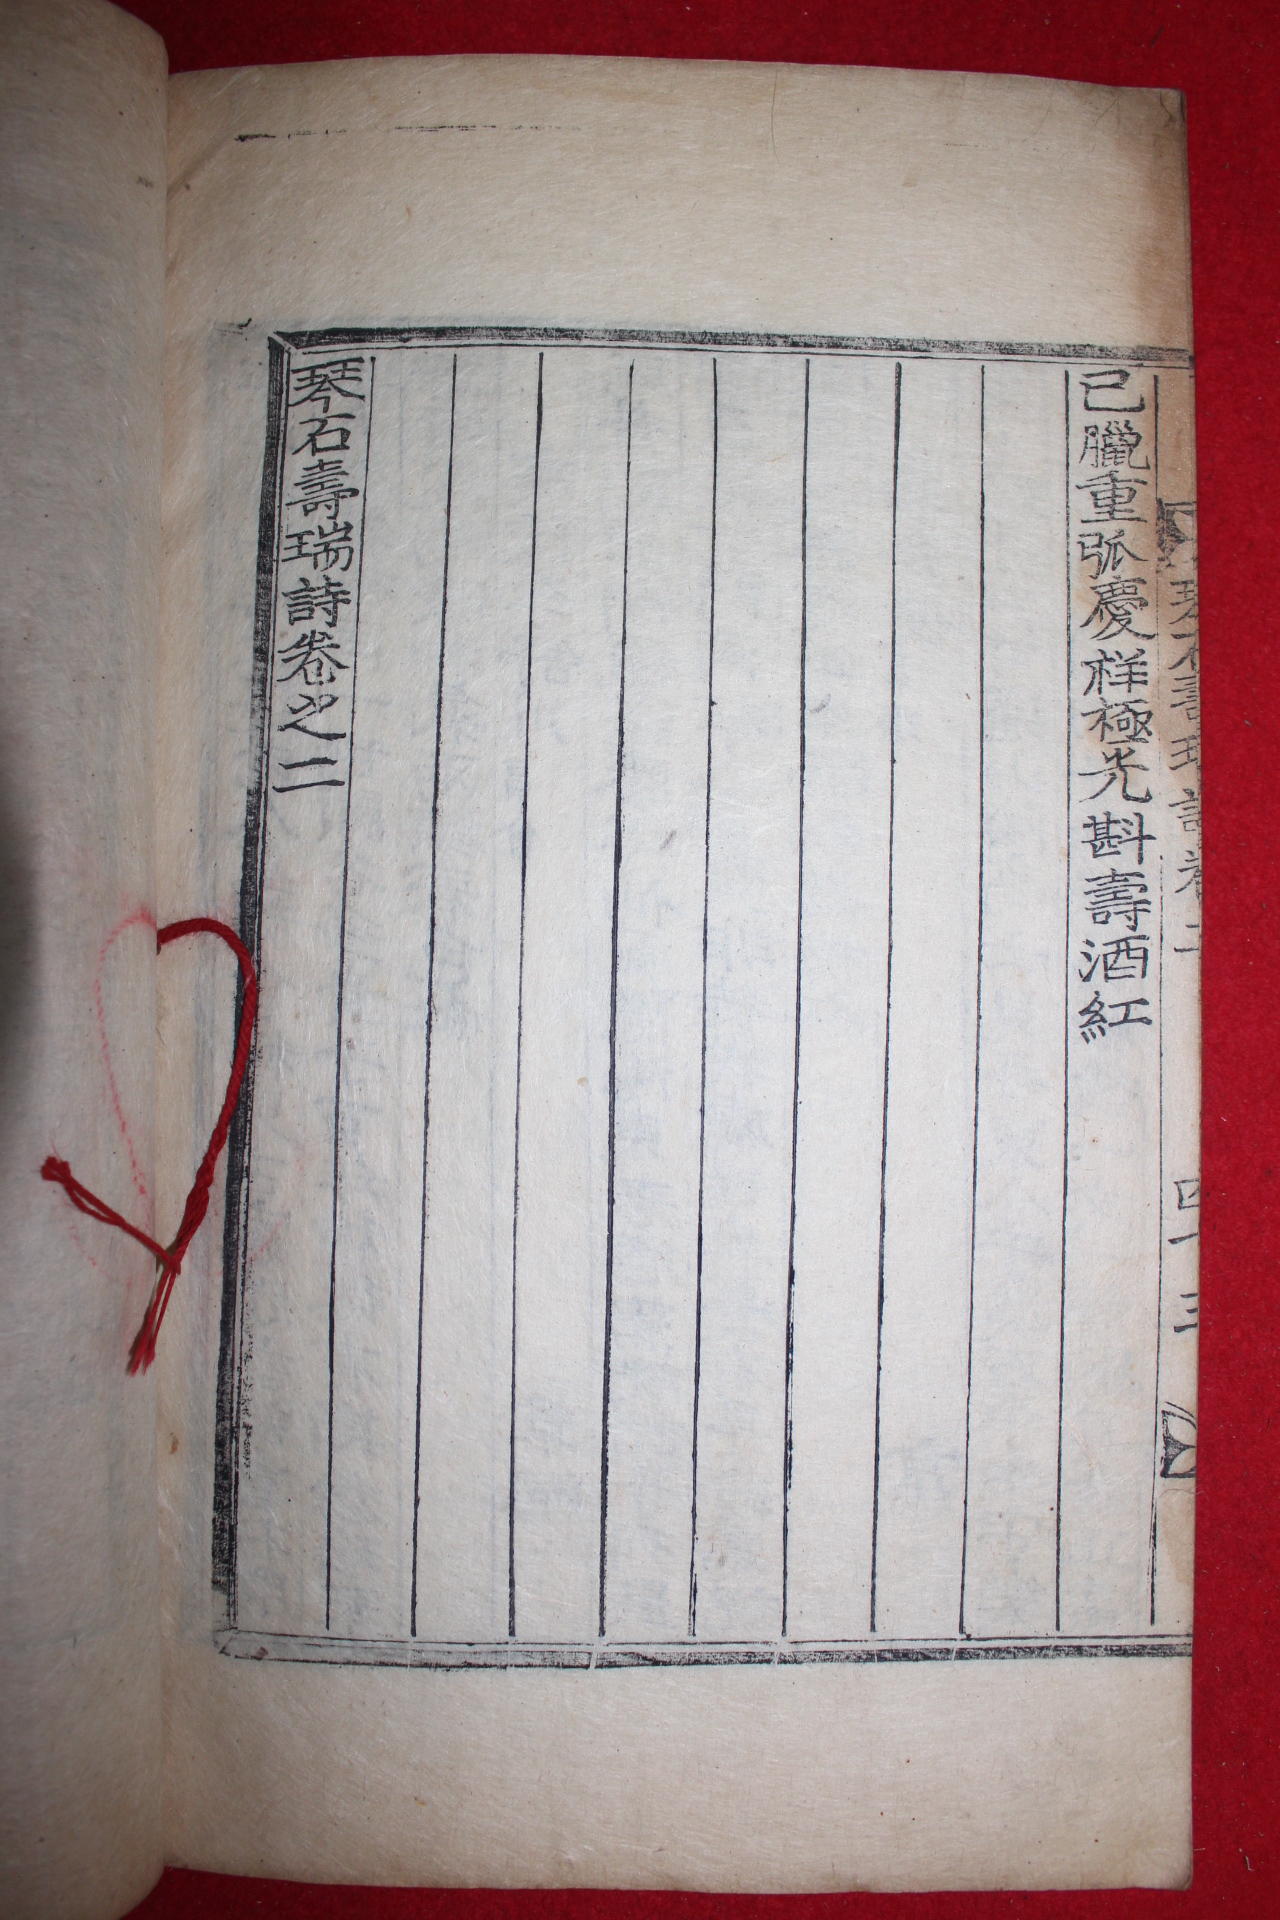 琴石壽瑞詩卷二
四十三
已臘重弧慶祥極光斟壽酒紅
琴石壽瑞詩卷之二